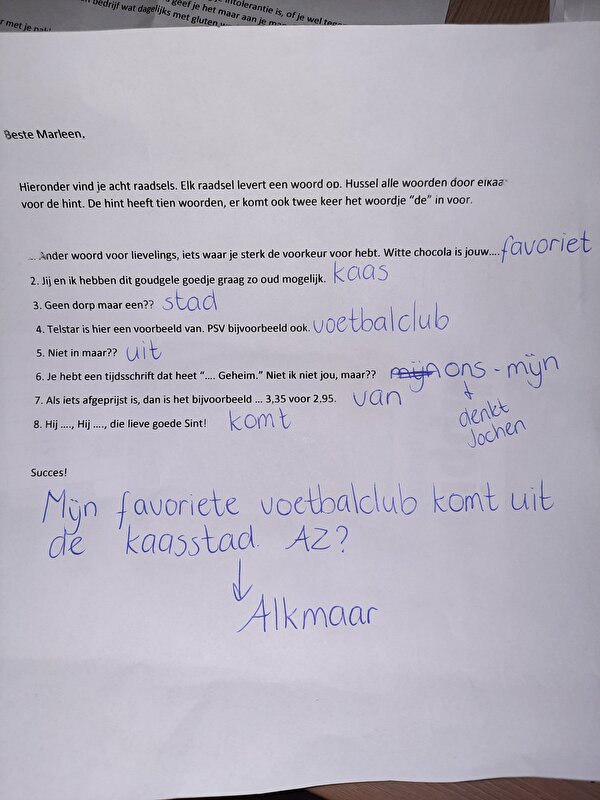 bedrijf wat dagelijks met gluten
geef je het maar aan je
intolerantie is, of je wel
met je
Beste Marleen,
Hieronder vind je acht raadsels. Elk raadsel levert een woord op. Hussel alle woorden door elkaar
voor de hint. De hint heeft tien woorden, er komt ook twee keer het woordje “de” in voor.
Ander woord voor lievelings, iets waar je sterk de voorkeur voor hebt. Witte chocola is jouw.... favoriet
2. Jij en ik hebben dit goudgele goedje graag zo oud mogelijk. kaas
3. Geen dorp maar een?? stad
4. Telstar is hier een voorbeeld van. PSV bijvoorbeeld ook. voetbalclub
5. Niet in maar?? uit
6. Je hebt een tijdsschrift dat heet “.... Geheim.” Niet ik niet jou, maar?? mijn ons - mijn
7. Als iets afgeprijst is, dan is het bijvoorbeeld ... 3,35 voor 2.95. van
denkt
Jochen
8. Hij ...., Hij ...., die lieve goede Sint! komt
Succes!
Mijn favoriete voetbalclub komt uit
de kaasstad. AZ?
↓
Alkmaar